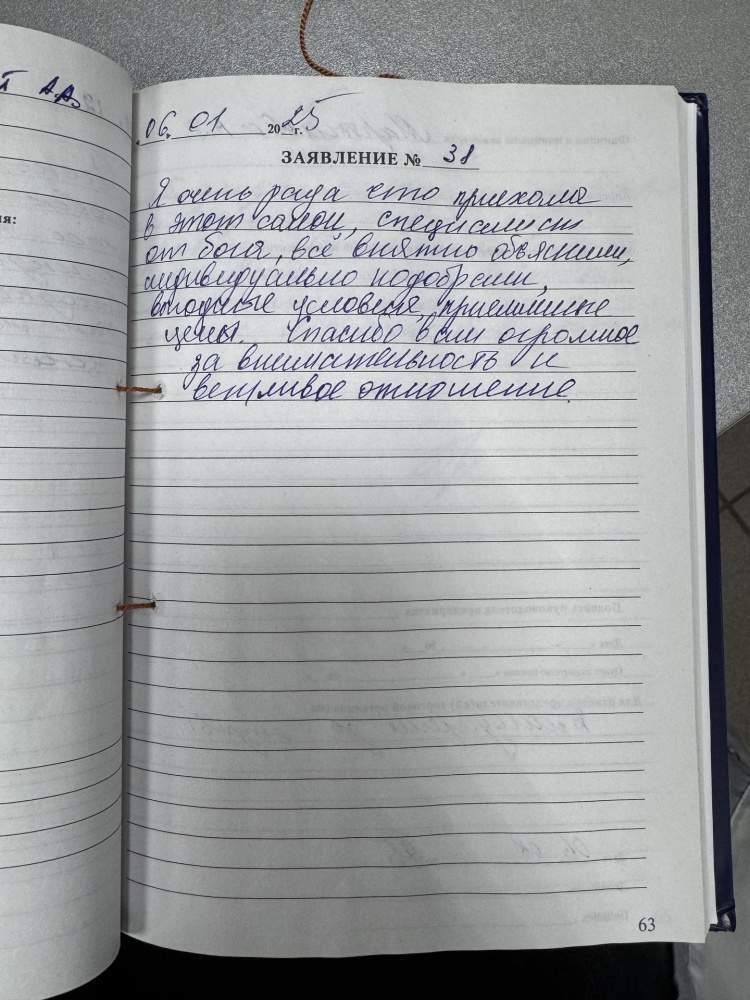 А.А.
06. 01 2025 г.
ЗАЯВЛЕНИЕ № 38
Я очень рада что приехала
в этот салон, специалисты
от бога, всё внятно объяснили,
индивидуально подобрали,
выгодные условия, приемлимые
цены. Спасибо вам огромное
за внимательность и
вежливое отношение.
63